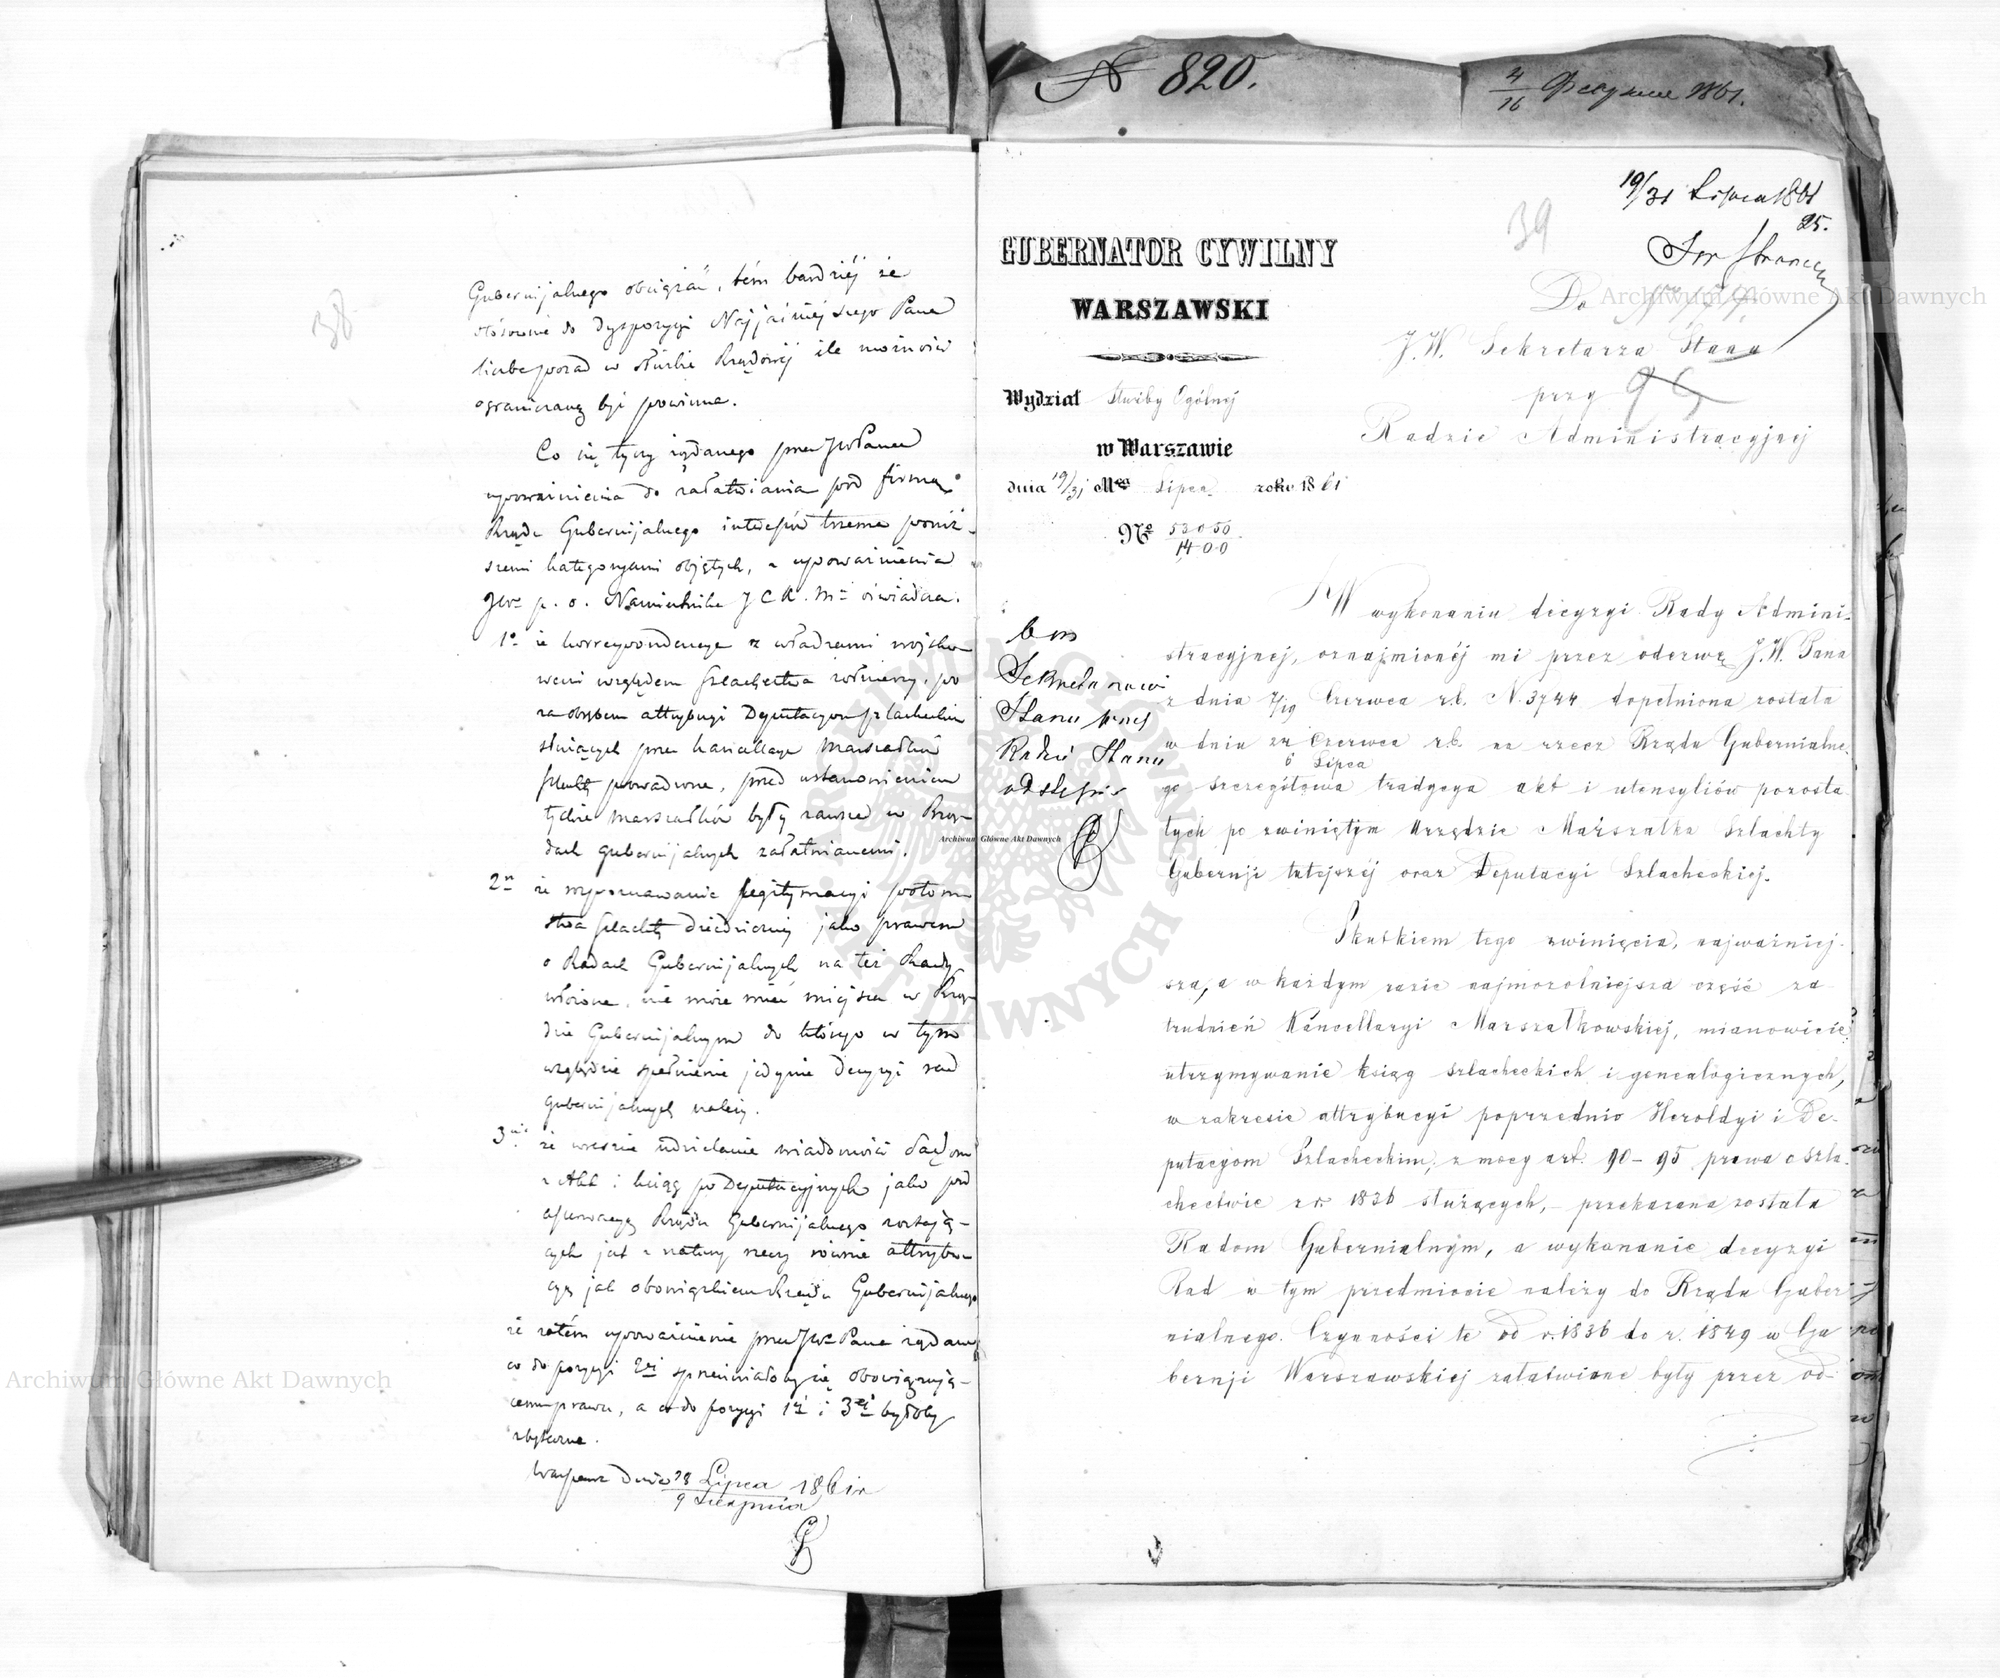 38
Gubernijalnego obciążać, tém bardziéj że
stósownie do dyspozycyi Najjaśniejszego Pana
liczba posad w służbie Rządowéj ile możności
ograniczaną być powinna.
Co się tyczy żądanego przez JW Pana
upoważnienia do załatwiania pod firmą
Rządu Gubernijalnego interesów trzema poniż-
szemi kategoryami objętych, z upoważnienia
JWo p. o. Namiestnika J C K. Mci oświadcza.
1o że korrespondencye z władzami wojsko-
wemi względem szlachectwa żołnierzy, po
za obrębem attrybucyi Deputacyom szlacheckim
służących przez kancellarye Marszałków
szlachty prowadzone, przed ustanowieniem
tychże Marszałków były zawsze w Rzą-
dach gubernijalnych załatwianemi.
2re że wyprowadzanie legitymacyi potom-
stwa szlachty dziedzicznéj jako prawem
o Radach Gubernijalnych na też Rady
włożone, nie może mieć miejsca w Rzą-
dzie Gubernijalnym do którego w tym
względzie spełnienie jedynie decyzyi rad
gubernijalnych należy.
3cie że wreszcie udzielanie wiadomości Sądom
z Akt i ksiąg po Deputacyjnych jako pod
Rządu Gubernijalnego zostają-
cych jest z natury rzeczy równie attrybu-
cyą jak obowiązkiem Rządu Gubernijalnego
że zatém upoważnienie przez JWo Pana żądane
co do pozycyi 2éj sprzeciwiałoby się obowiązują-
cemu prawu, a co do pozycyi 1éj i 3éj byłoby
zbyteczne.
Warszawa dnia 28 Lipca 1861 r
9 Sierpnia
N 820.
4/16 1861.
19/31 Lipca 1861
25.
39
GUBERNATOR CYWILNY
WARSZAWSKI
Do
J.W. Sekretarza Stanu
przy
Radzie Administracyjnej
Wydział Służby Ogólnej
w Warszawie
dnia 19/31 Mca Lipca roku 1861
No 53050
1400
Sekretarzowi
Stanu przy
Radzie Stanu
odstępuie
W wykonaniu decyzyi Rady Admini-
stracyjnej, oznajmionéj mi przez odezwę J.W. Pana
z dnia 7/19 Czerwca r.b. N. 3744 dopełniona została
w dniu 24 Czerwca r.b. na rzecz Rządu Gubernialne-
6 Lipca
go szczegółowa tradycya akt i utensyliów pozosta-
łych po zwiniętym Urzędzie Marszałka Szlachty
Gubernji tutejszéj oraz Deputacyi Szlacheckiej.
Skutkiem tego zwinięcia, najważniej-
sza, a w każdym razie najmozolniejsza część za-
trudnień Kancellaryi Marszałkowskiej, mianowicie:
utrzymywanie ksiąg szlacheckich i genealogicznych,
w zakresie attrybucyi poprzednio Heroldyi i De-
putacyom Szlacheckim, z mocy art. 90-95 prawa o szla-
chectwie z r. 1836 służących, - przekazana została
Radom Gubernialnym, a wykonanie decyzyi
Rad w tym przedmiocie należy do Rządu Guber-
nialnego. Czynności te od r. 1836 do r. 1849 w Gu-
bernji Warszawskiej załatwiane były przez od-